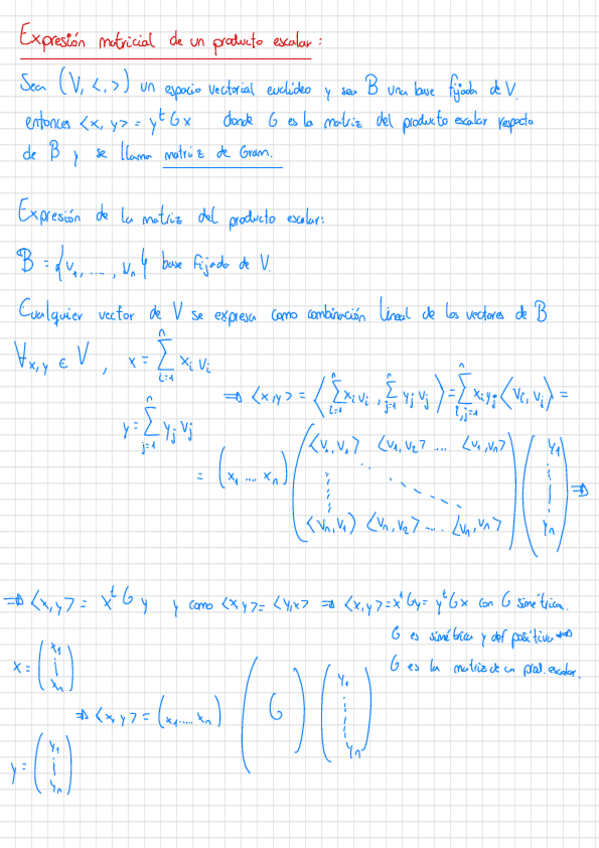 Expresión matricial de un producto escalar:
Sea (V, <,>) un espacio vectorial euclídeo y sea B una base fijada de V.
entonces <x, y> = y^t G x donde G es la matriz del producto escalar respecto
de B y se llama matriz de Gram.
Expresión de la matriz del producto escalar:
B = {v_1, ..., v_n} base fijada de V.
Cualquier vector de V se expresa como combinación lineal de los vectores de B
∀x,y ∈ V, x = ∑_{i=1}^n x_i v_i
y = ∑_{j=1}^n y_j v_j
⇒ <x,y> = <∑_{i=1}^n x_i v_i, ∑_{j=1}^n y_j v_j> = ∑_{i,j=1}^n x_i y_j <v_i, v_j> =
= (x_1 ... x_n) ( <v_1,v_1> <v_1,v_2> ... <v_1,v_n> ⋮ ⋱ <v_n,v_1> <v_n,v_2> ... <v_n,v_n> ) ( y_1 ⋮ y_n ) ⇒
⇒ <x,y> = x^t G y y como <x,y> = <y,x> ⇒ <x,y> = x^t G y = y^t G x con G simétrica.
G es simétrica y def positiva ⇔
G es la matriz de un prod. escalar.
x = ( x_1 ⋮ x_n )
⇒ <x,y> = (x_1 ..... x_n) ( G ) ( y_1 ⋮ y_n )
y = ( y_1 ⋮ y_n )